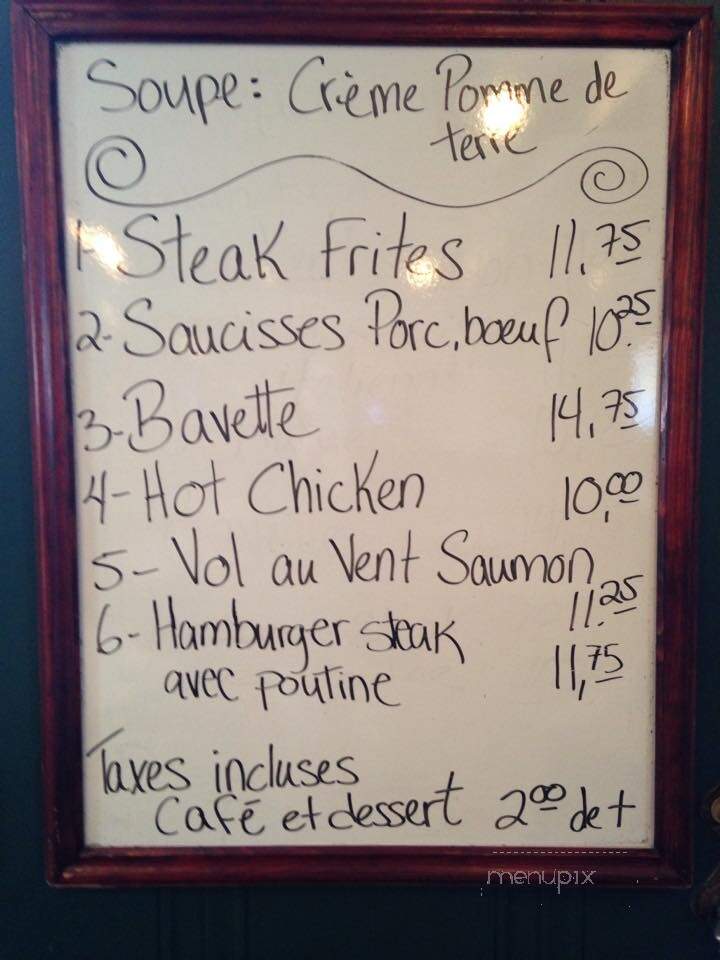 Soupe: Crème Pomme de
terre
1- Steak Frites 11,75
2- Saucisses Porc, boeuf 10.25
3- Bavette 14,75
4- Hot Chicken 10,00
5- Vol au Vent Saumon
11.25
6- Hamburger steak
avec poutine 11,75
Taxes incluses
Café et dessert 2 00 de +
menupix